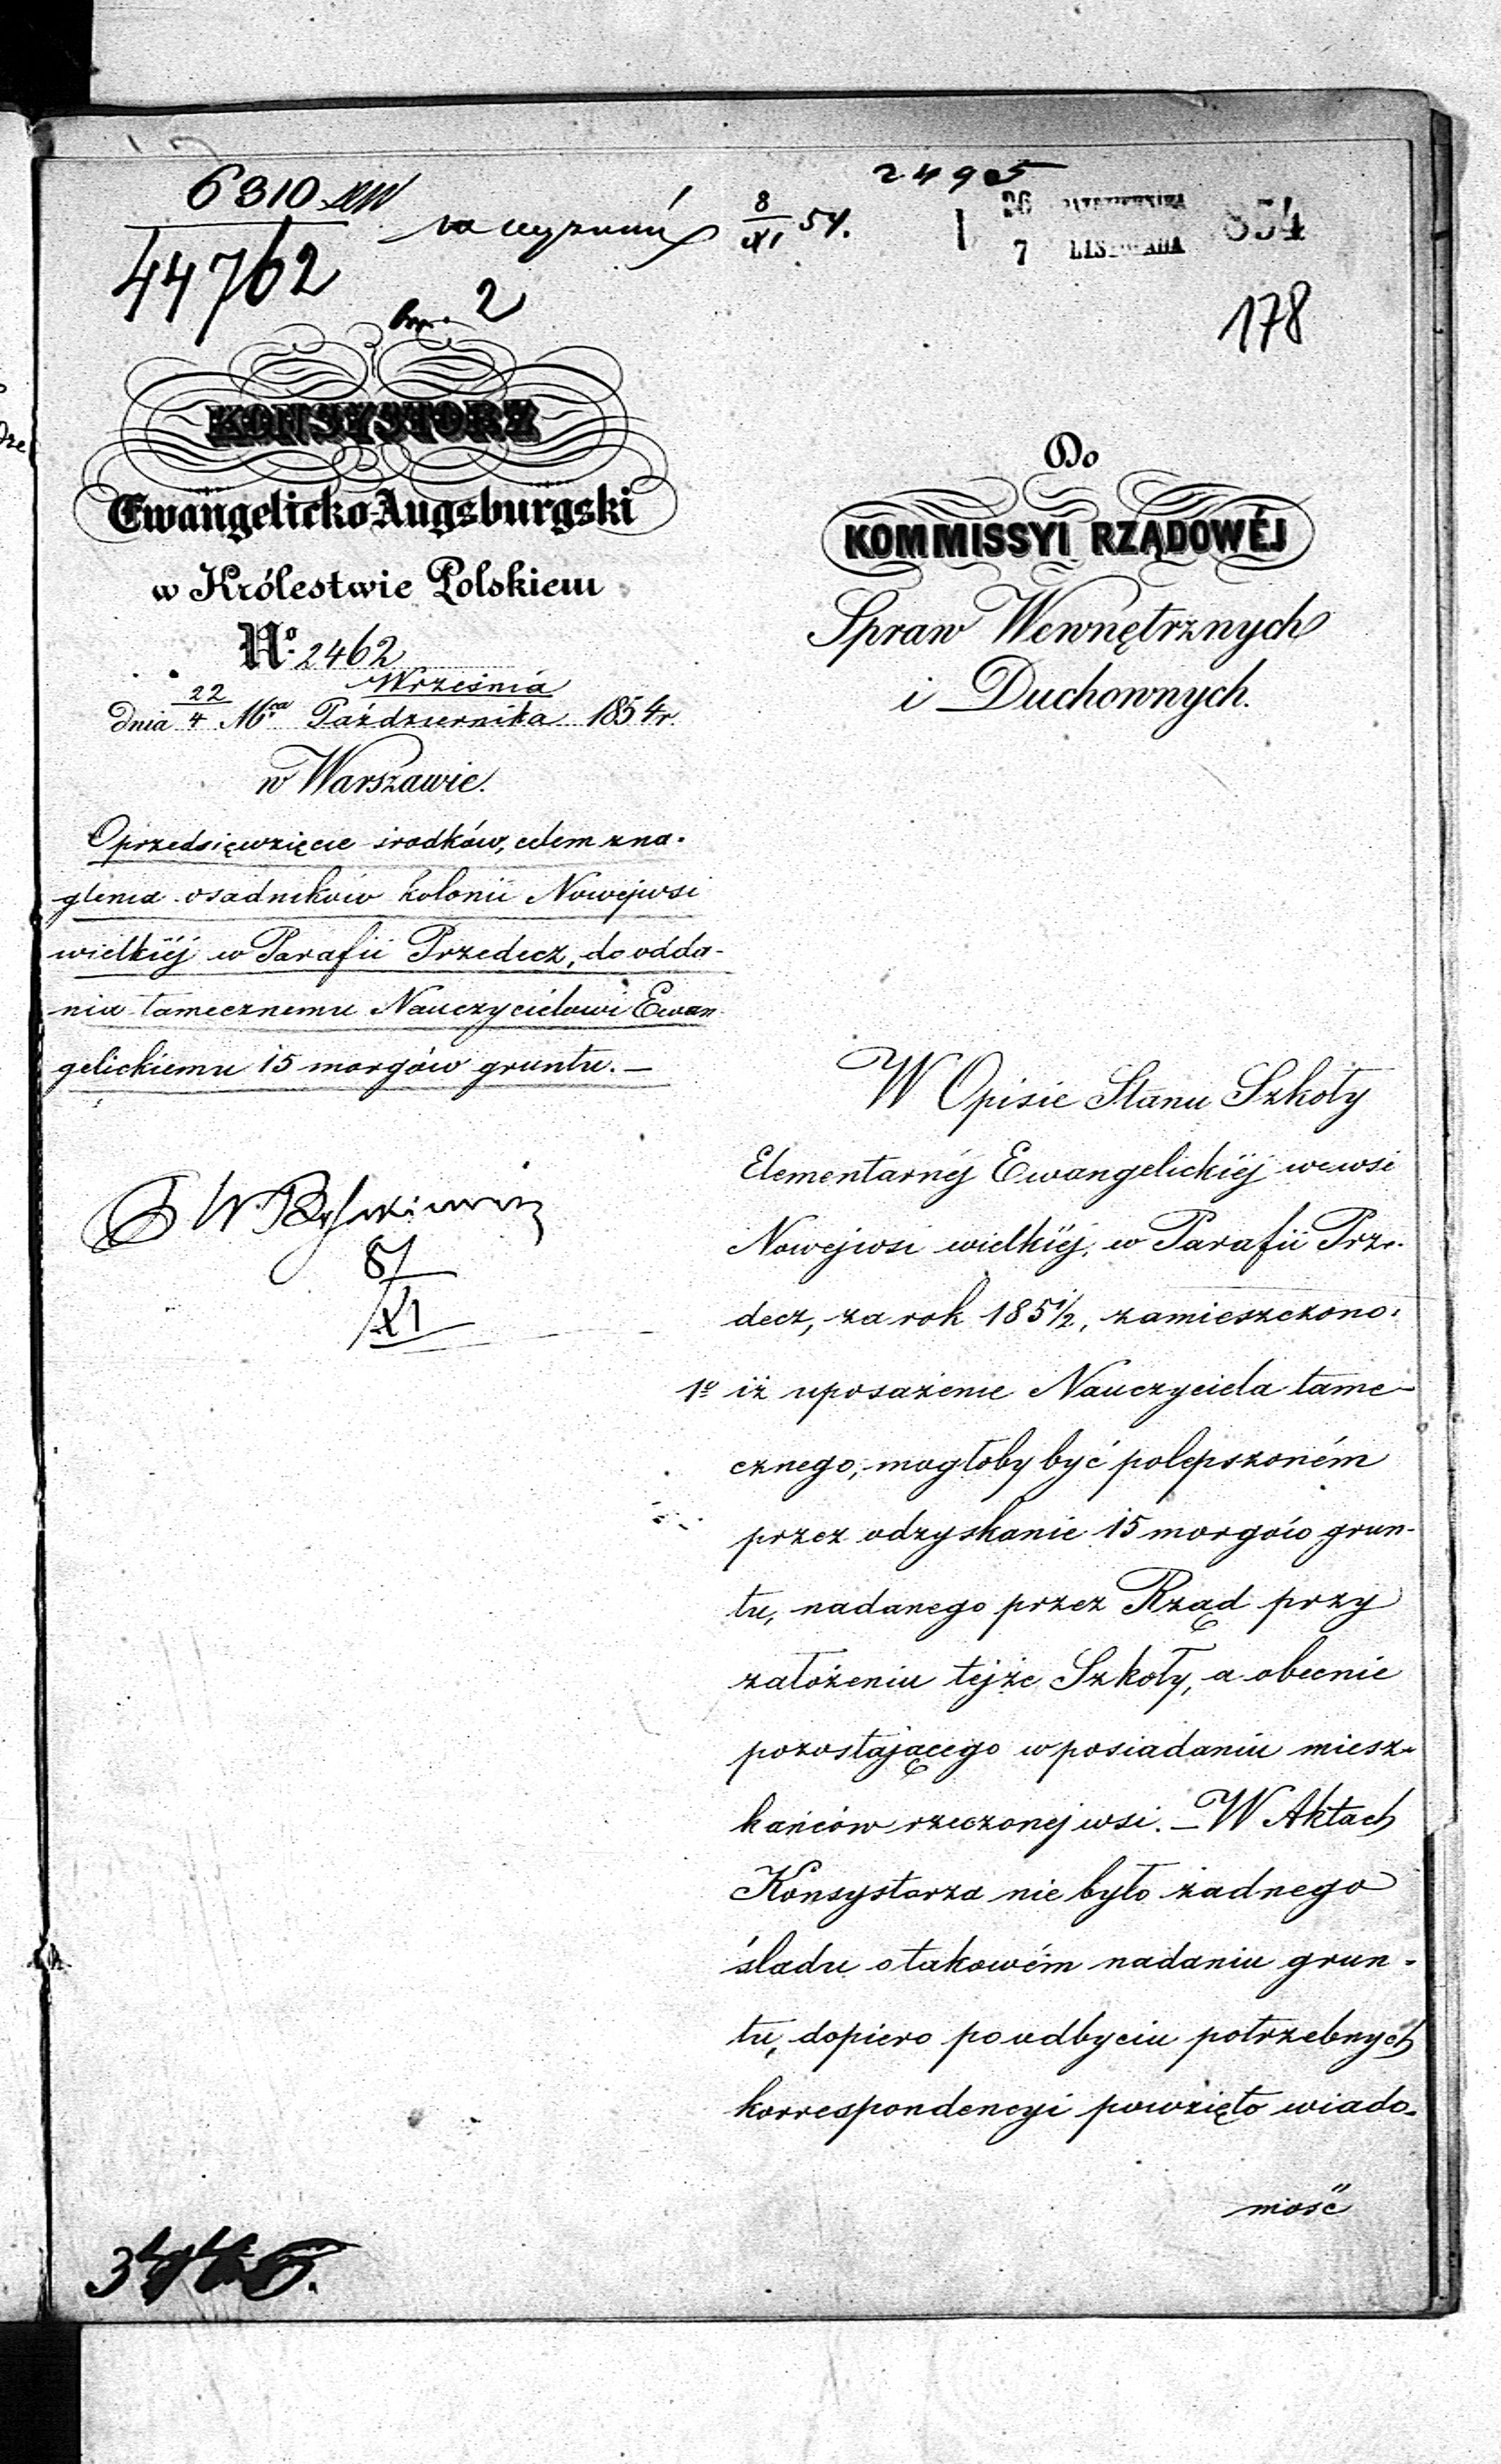 6310
44762
8/XI 54.
2495
26 PAZDZIERNIKA 854
7 LISTOPADA
178
2
KONSYSTORZ
Ewangelicko-Augsburgski
w Królestwie Polskiem
No. 2462
22 Września
dnia 4 Mca Października 1854 r.
w Warszawie.
O przedsięwzięcie środków, celem zna-
glenia osadników kolonii Nowejwsi
wielkiéj w Parafii Przedecz, do odda-
nia tamecznemu Nauczycielowi Ewan
gelickiemu 15 morgów gruntu. —
8/XI
Do
KOMMISSYI RZĄDOWÉJ
Spraw Wewnętrznych
i Duchownych.
W Opisie Stanu Szkoły
Elementarnéj Ewangelickiéj we wsi
Nowejwsi wielkiéj, w Parafii Prze-
decz, za rok 185 1/2, zamieszczono:
1o iż uposażenie Nauczyciela tame-
cznego, mogłoby być polepszoném
przez odzyskanie 15 morgów grun-
tu, nadanego przez Rząd przy
założeniu tejże Szkoły, a obecnie
pozostającego w posiadaniu miesz-
kańców rzeczonej wsi. — W Aktach
Konsystorza nie było żadnego
śladu o takowém nadaniu grun-
tu, dopiero po odbyciu potrzebnych
korrespondencyi powzięto wiado-
mość